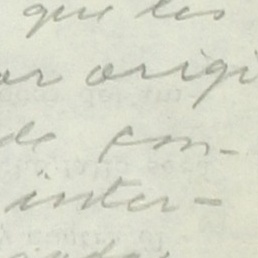 que les
or origi
de con-
inter-